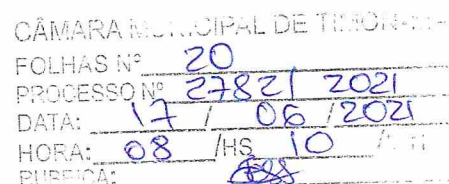 CÂMARA MUNICIPAL DE TIMON-MA
FOLHAS Nº 20
PROCESSO Nº 27821 2021
DATA: 17 / 06 / 2021
HORA: 08 /HS 10
RUBRICA: